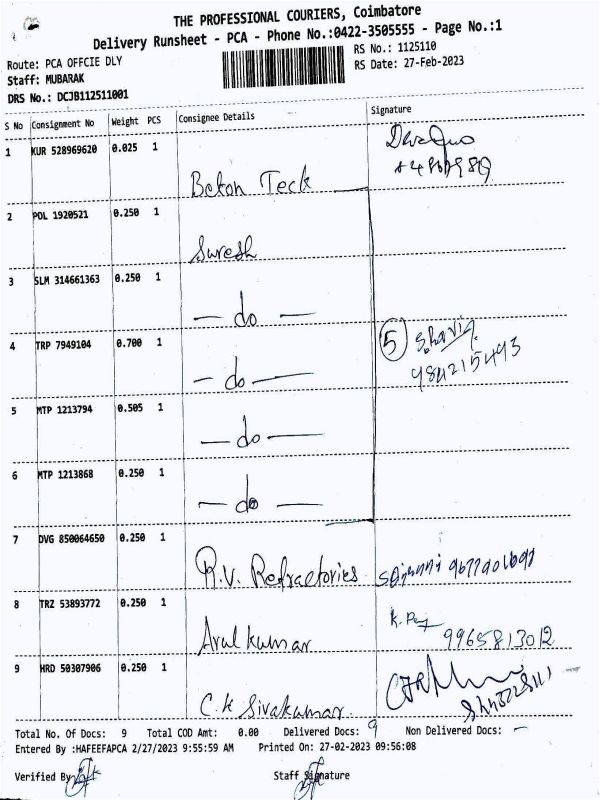 THE PROFESSIONAL COURIERS, Coimbatore
Delivery Runsheet - PCA - Phone No.:0422-3505555 - Page No.:1
Route: PCA OFFCIE DLY
RS No.: 1125110
Staff: MUBARAK
RS Date: 27-Feb-2023
DRS No.: DCJB112511001
S No Consignment No Weight PCS Consignee Details Signature
1 KUR 528969620 0.025 1 Beton Teck
2 POL 1920521 0.250 1 Suresh
3 SLM 314661363 0.250 1 — do —
4 TRP 7949104 0.700 1 — do — 5 S.Ravi 9842215493
5 MTP 1213794 0.505 1 — do —
6 MTP 1213868 0.250 1 — do —
7 DVG 850064650 0.250 1 R.V. Refractories
8 TRZ 53893772 0.250 1 Arul kumar 9965813012
9 HRD 50307906 0.250 1 C.K Sivakumar
Total No. Of Docs: 9 Total COD Amt: 0.00 Delivered Docs: 9 Non Delivered Docs: —
Entered By :HAFEEFAPCA 2/27/2023 9:55:59 AM Printed On: 27-02-2023 09:56:08
Verified By Staff Signature